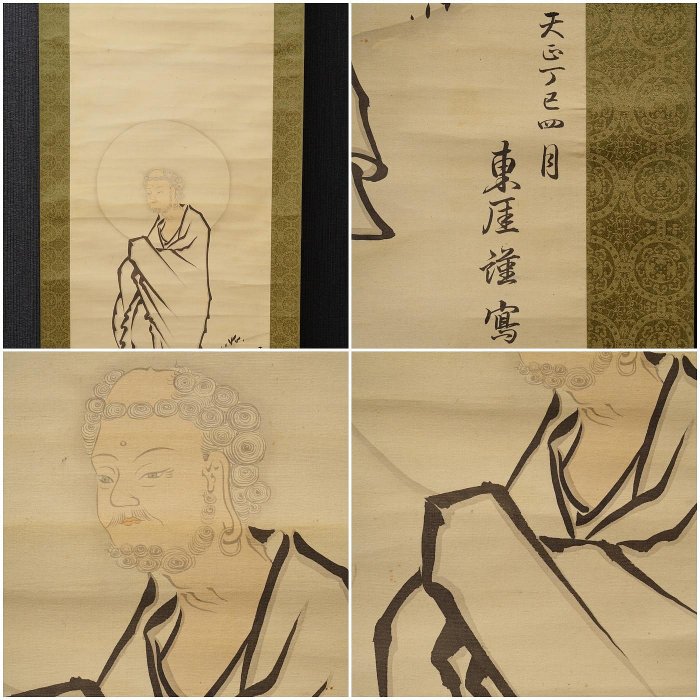 天正丁巳四月
東厓謹寫